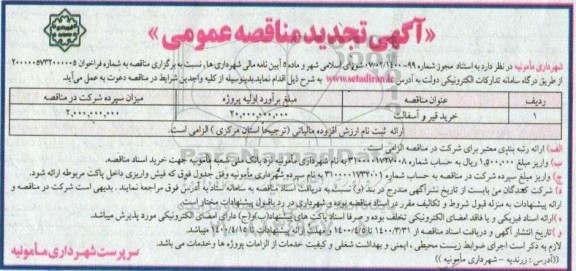 «آگهی تجدید مناقصه عمومی»
شهرداری مأمونیه در نظر دارد به استناد مجوز شماره ۹۹- ۰۷/۰۲/۱۴۰۰ شورای اسلامی شهر و ماده ۵ آیین نامه مالی شهرداری ها، نسبت به برگزاری مناقصه به شماره فراخوان ۲۰۰۰۰۰۵۷۳۲۰۰۰۰۰۵
از طریق درگاه سامانه تدارکات الکترونیکی دولت به آدرس www.setadiran.ir به شرح ذیل اقدام نماید.بدینوسیله از کلیه واجدین شرایط در مناقصه دعوت به عمل می‌آید.
ردیف عنوان مناقصه مبلغ برآورد اولیه پروژه میزان سپرده شرکت در مناقصه
۱ خرید قیر و آسفالت ۲۰,۰۰۰,۰۰۰,۰۰۰ ۲,۰۰۰,۰۰۰,۰۰۰
ارائه ثبت نام ارزش افزوده مالیاتی (ترجیحاً استان مرکزی) الزامی است.
الف) ارائه رتبه بندی معتبر برای شرکت در مناقصه الزامی است.
ب) واریز مبلغ ۱,۵۰۰,۰۰۰ ریال به حساب شماره ۳۱۰۰۰۰۱۷۳۲۷۰۰۸ به نام شهرداری مأمونیه نزد بانک ملی شعبه مأمونیه جهت خرید اسناد مناقصه.
ج) واریز مبلغ سپرده شرکت در مناقصه به حساب شماره ۳۱۰۰۰۰۱۷۳۴۰۰۱ به نام سپرده شهرداری مأمونیه وفق جدول فوق که فیش واریزی داخل پاکت مربوطه ارائه شود.
د) شرکت کنندگان می بایست از تاریخ نشر آگهی مندرج در بند (و) نسبت به دریافت اسناد مناقصه به سامانه ستاد به آدرس فوق مراجعه نمایند . بدیهی است شرکت در مناقصه و
ارائه پیشنهادات به منزله قبول شروط و تکالیف مقرر در اسناد مناقصه بوده و شهرداری در رد یا قبول پیشنهادات مختار است.
ه)ارائه اسناد فیزیکی و یا فاقد امضای الکترونیکی تخلف بوده و صرفا اسناد پاکت های پیشنهاد(ب)و(ج) دارای امضای الکترونیکی مورد پذیرش میباشد.
و) تاریخ انتشار آگهی و دریافت اسناد مناقصه از ۱۴۰۰/۳/۳۱ تا ۱۴۰۰/۴/۵ و مهلت ارائه پیشنهادات تا ۱۴۰۰/۴/۱۵ میباشد.
لازم به ذکر است اجرای ضوابط زیست محیطی ، ایمنی و بهداشت شغلی و کیفیت خدمات از الزامات پروژه ها وخدمات می باشد.
((آدرس : زرندیه – شهرداری مأمونیه ))
سرپرست شهرداری مأمونیه